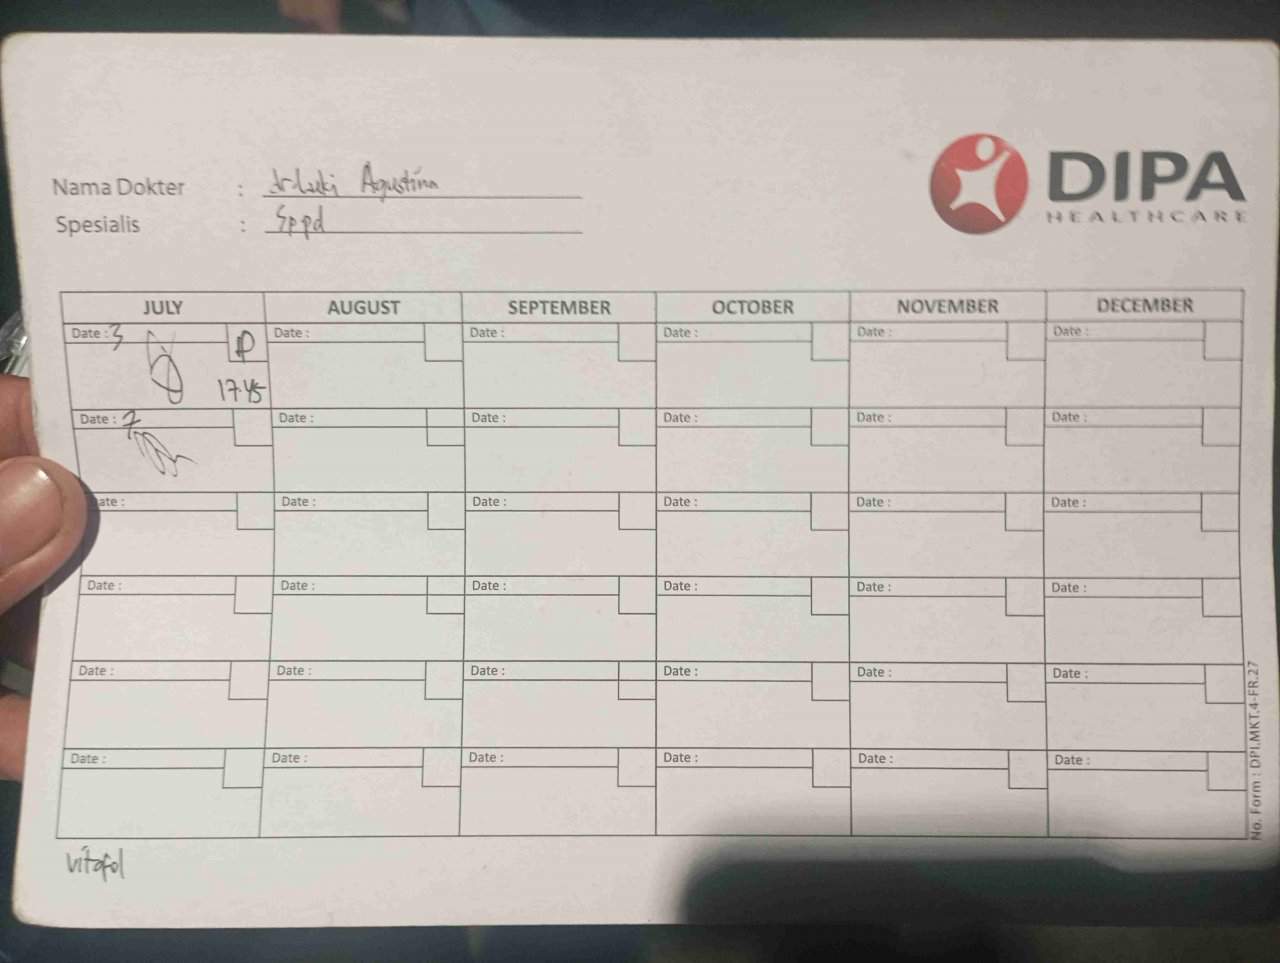 DIPA
HEALTHCARE
Nama Dokter : dr Luki Agustina
Spesialis : Sppd
JULY AUGUST SEPTEMBER OCTOBER NOVEMBER DECEMBER
Date : 3 P Date : Date : Date : Date : Date :
17.45
Date : 7 Date : Date : Date : Date : Date :
ate : Date : Date : Date : Date : Date :
Date : Date : Date : Date : Date : Date :
Date : Date : Date : Date : Date : Date :
Date : Date : Date : Date : Date : Date :
No. Form : DPI.MKT.4-FR.27
vitafol